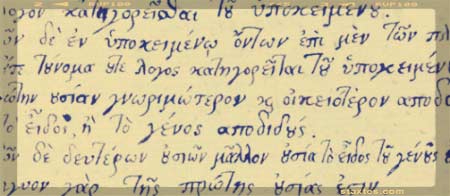 λόγον κατηγορεῖσθαι τοῦ ὑποκειμένου.
ῶν δὲ ἐν ὑποκειμένῳ ὄντων ἐπὶ μὲν τῶν
τοὔνομα οὔτε λόγος κατηγορεῖται τοῦ ὑποκειμέν
ώτην οὐσίαν γνωριμώτερον ϗ οἰκειότερον ἀποδώ
τὸ εἶδος, ἢ τὸ γένος ἀποδιδούς.
ῶν δὲ δευτέρων οὐσιῶν μᾶλλον οὐσία τὸ εἶδος τοῦ γένους
γιον γὰρ τῆς πρώτης οὐσίας ἐστιν
siaxtos.com